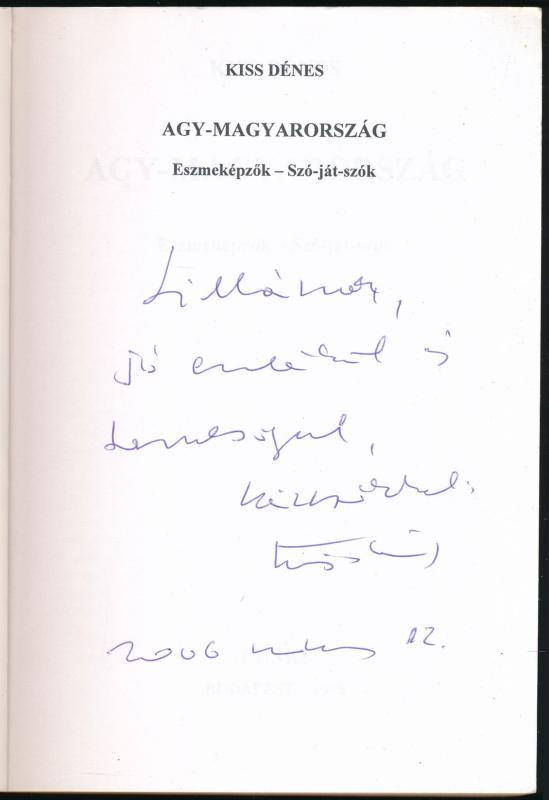 KISS DÉNES
AGY-MAGYARORSZÁG
Eszmeképzők – Szó-ját-szók
Lillának,
jó emlékül és
kézcsókkal:
Kiss Dénes
2006 12.